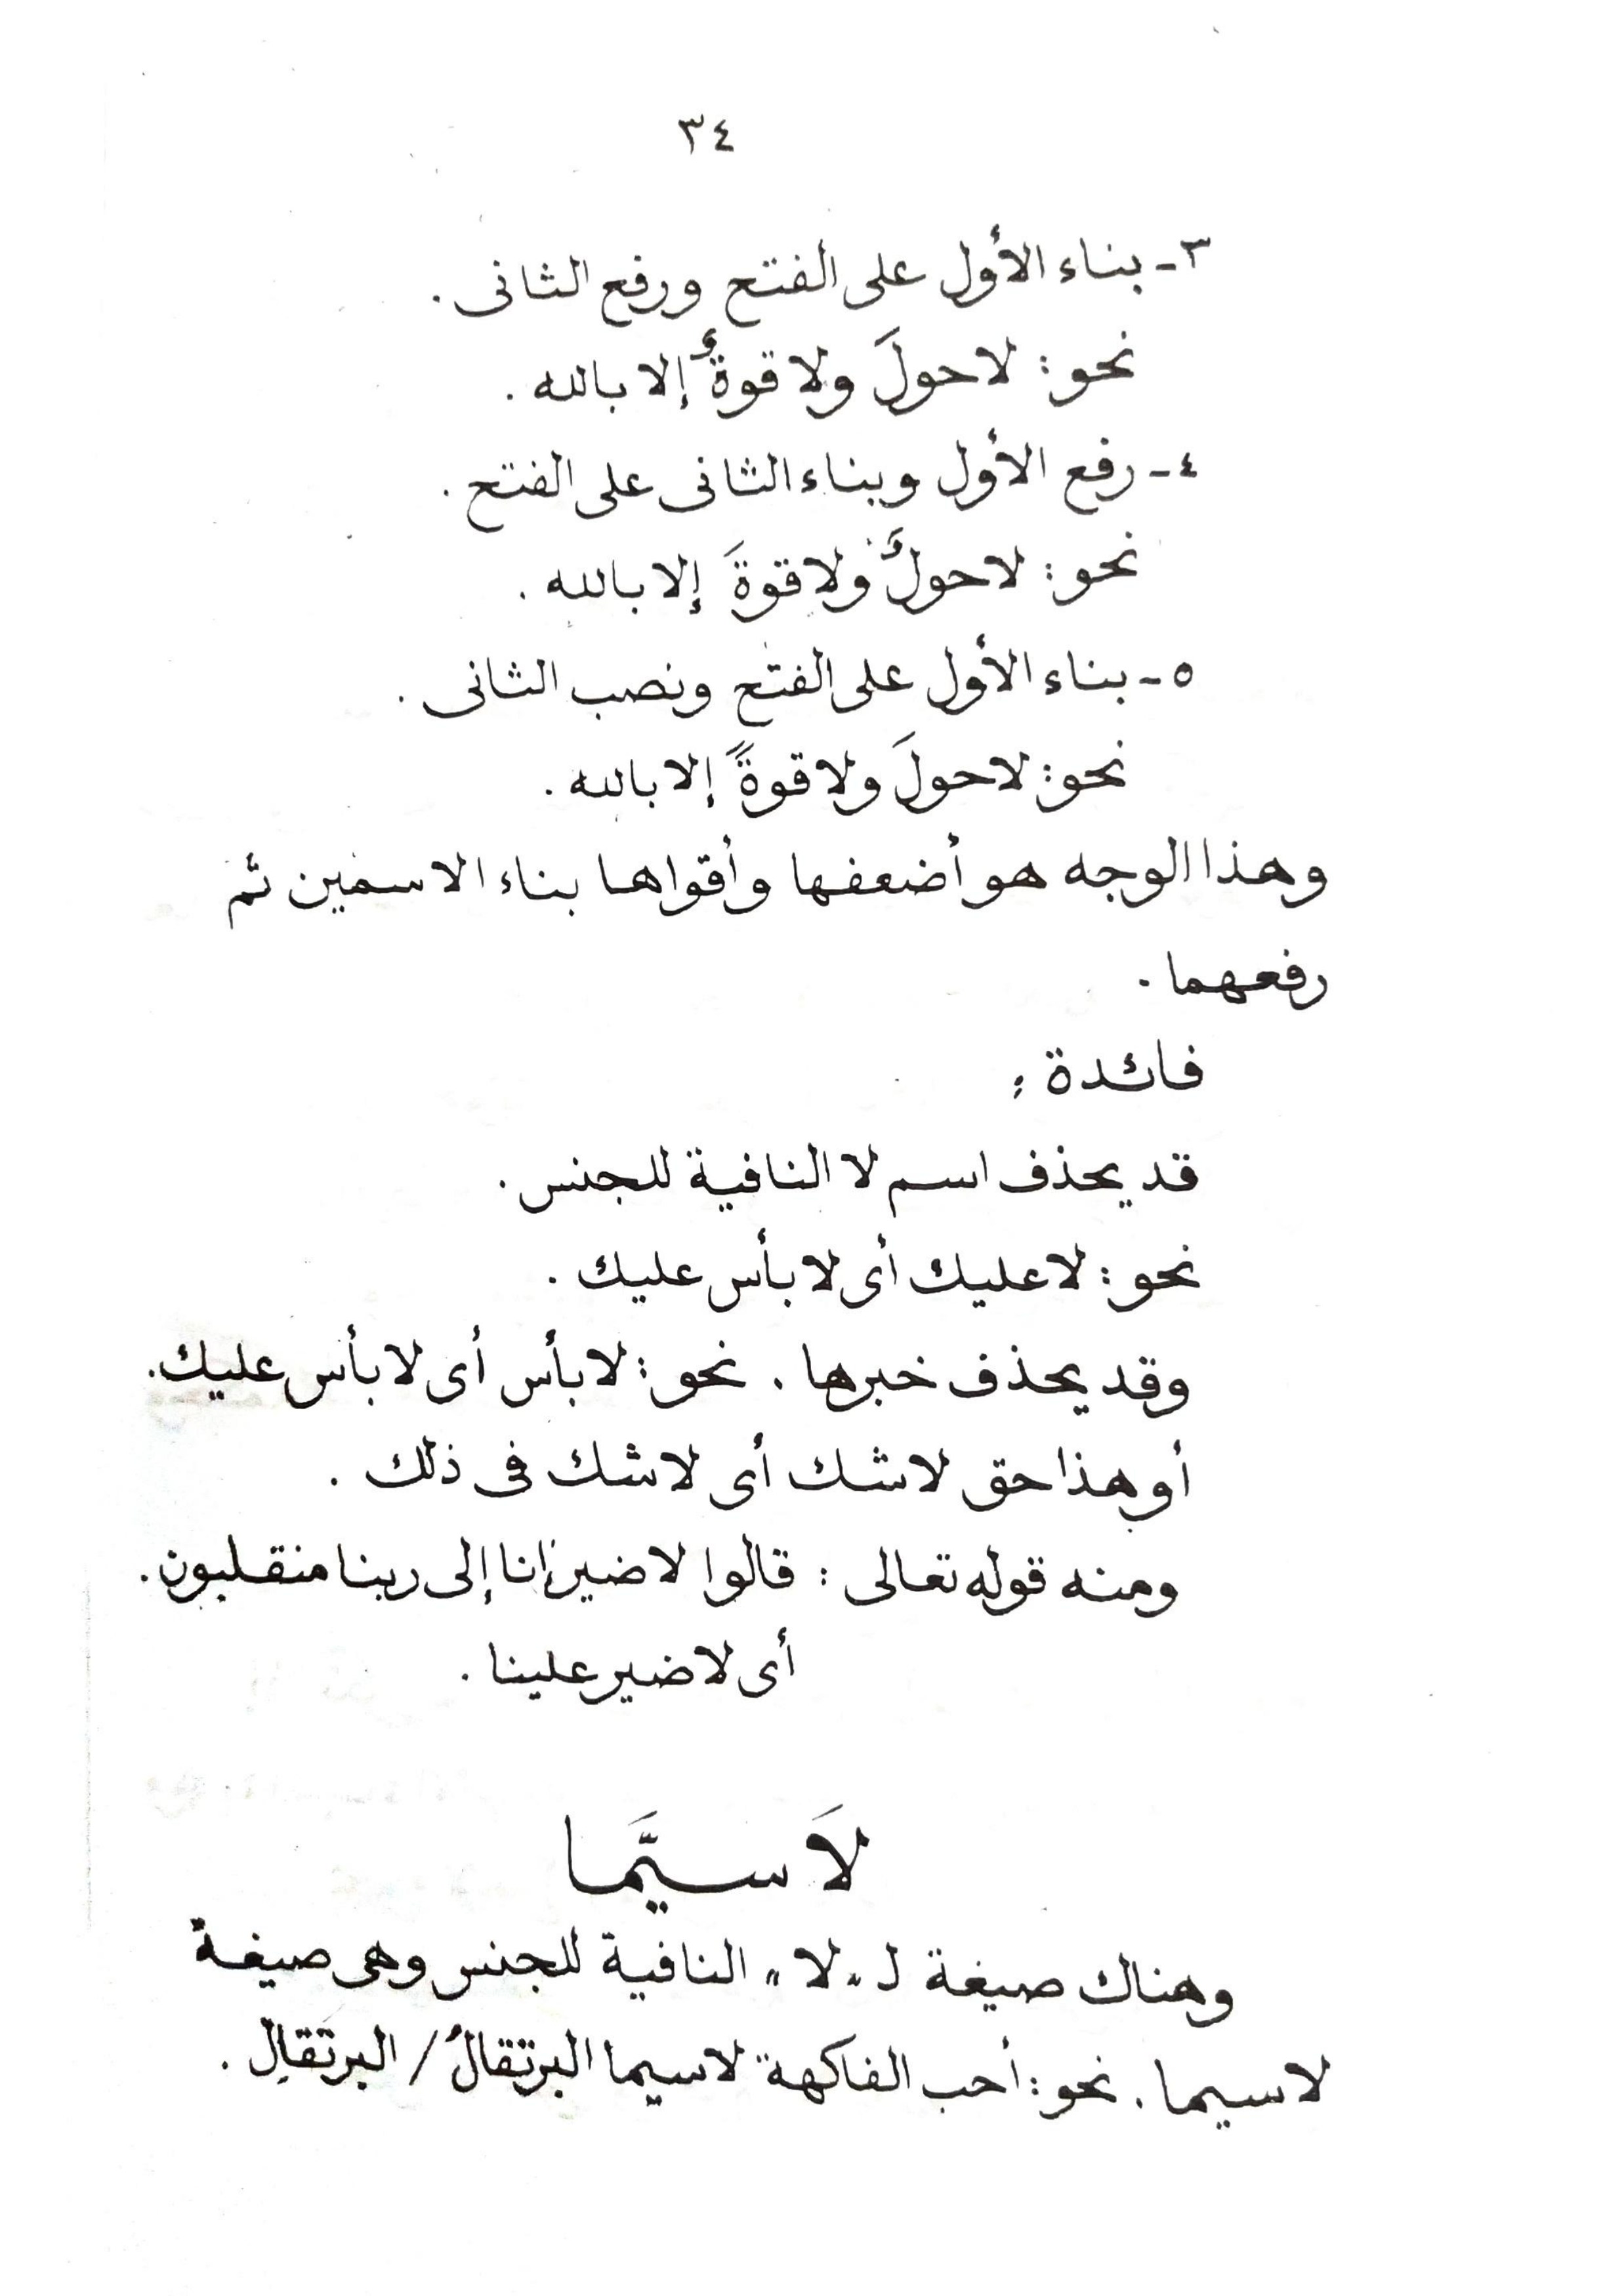 ٣٤
٣- بناء الأول على الفتح ورفع الثانى .
نحو : لا حولَ ولا قوةٌ إلا بالله .
٤- رفع الأول وبناء الثانى على الفتح .
نحو : لا حولٌ ولا قوةَ إلا بالله .
٥- بناء الأول على الفتح ونصب الثانى .
نحو : لا حولَ ولا قوةً إلا بالله .
وهذا الوجه هو أضعفها وأقواها بناء الاسمين ثم
رفعهما .
فائدة :
قد يحذف اسم لا النافية للجنس .
نحو : لا عليك أى لا بأس عليك .
وقد يحذف خبرها . نحو : لا بأس أى لا بأس عليك .
أو هذا حق لا شك أى لا شك فى ذلك .
ومنه قوله تعالى : قالوا لا ضير إنا إلى ربنا منقلبون .
أى لا ضير علينا .
لَا سيَّمَا
وهناك صيغة لـ " لا " النافية للجنس وهى صيغة
لا سيما . نحو : أحب الفاكهة لا سيما البرتقالُ / البرتقالِ .